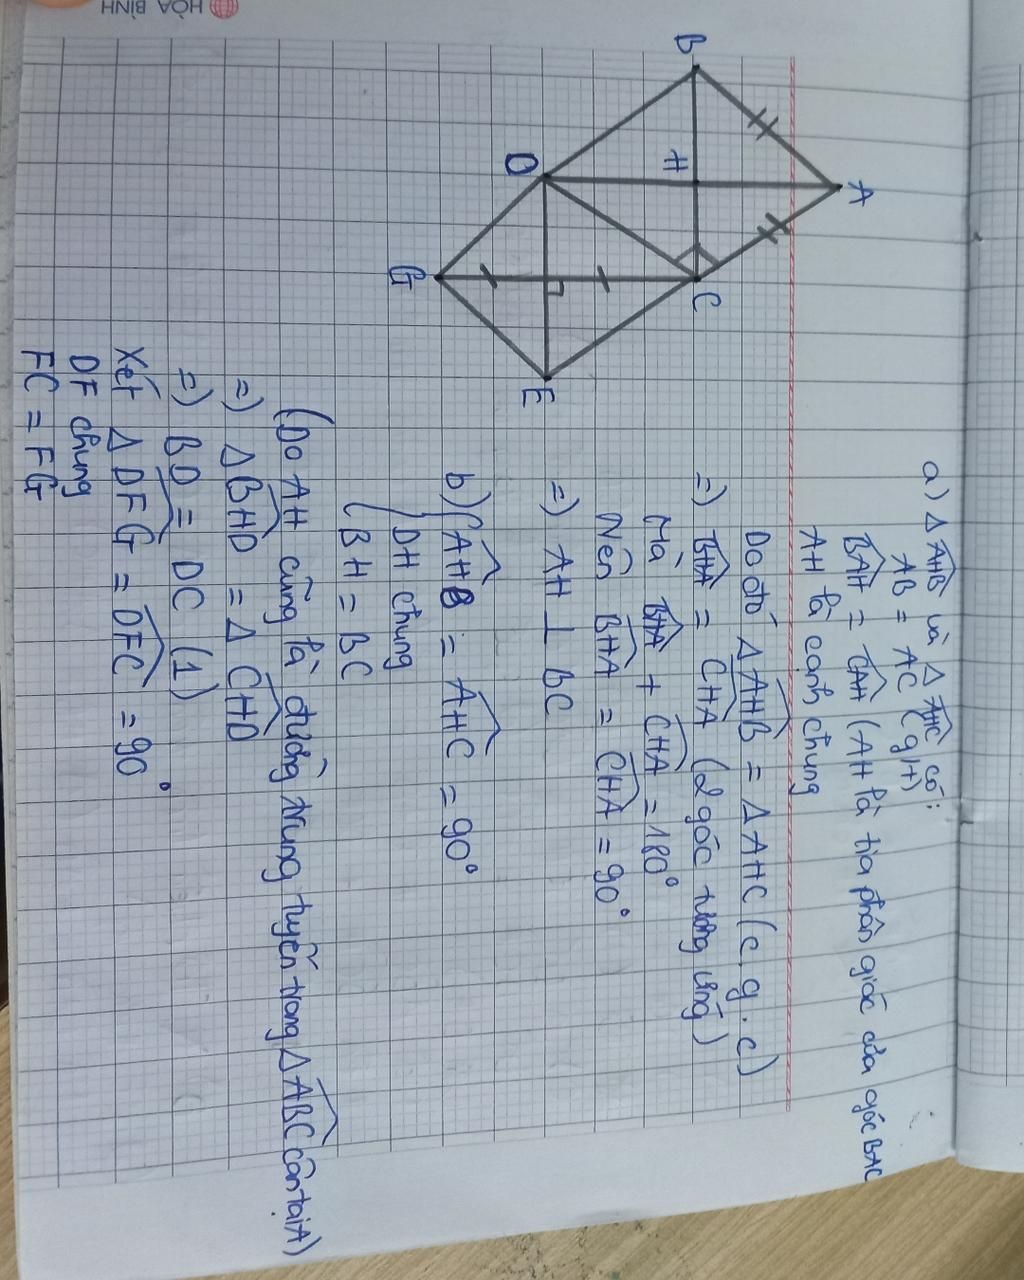 HÒA BÌNH
B
A
H
D
C
G
E
a) Δ AHB và Δ AHC có:
AB = AC (gH)
BAH = CAH (AH là tia phân giác của góc BAC
AH là cạnh chung
Do đó Δ AHB = Δ AHC (c.g.c)
=) BHA = CHA (2 góc tương ứng)
Mà BHA + CHA = 180°
Nên BHA = CHA = 90°
=) AH ⊥ BC
b) { AHB = AHC = 90°
DH chung
BH = BC
(Do AH cũng là đường trung tuyến trong Δ ABC cân tại A)
=) Δ BHD = Δ CHD
=) BD = DC (1)
Xét Δ DFG = DFC = 90°
DF chung
FC = FG